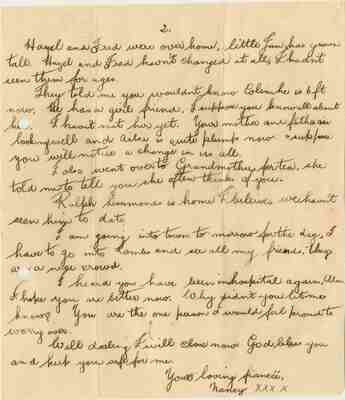 2.
Hazel and Fred were over home, little Jim has grown
tall. Hazel and Dad hasn't changed at all, I hadn't
seen them for ages.
They told me you wouldn't know he is 6ft
now. He has a girl friend, I suppose you know all about
her. I havent met her yet. Your mother and father are
looking well and is quite plump now I suppose
you will notice a change in us all.
I also went over to Grandmother for tea, she
told me to tell you she often thinks of you.
Ralph Simmonds is home I believe, we havent
seen him to date.
I am going into town to morrow for the day, I
have to go into and see all my friends, they
are a nice crowd.
I heard you have been in hospital again,
I hope you are better now. Why didn't you let me
know? You are the one person I would feel proud to
worry over.
Well darling I will close now God bless you
and keep you safe for me.
Your loving fiancée,
Nancy xxx x